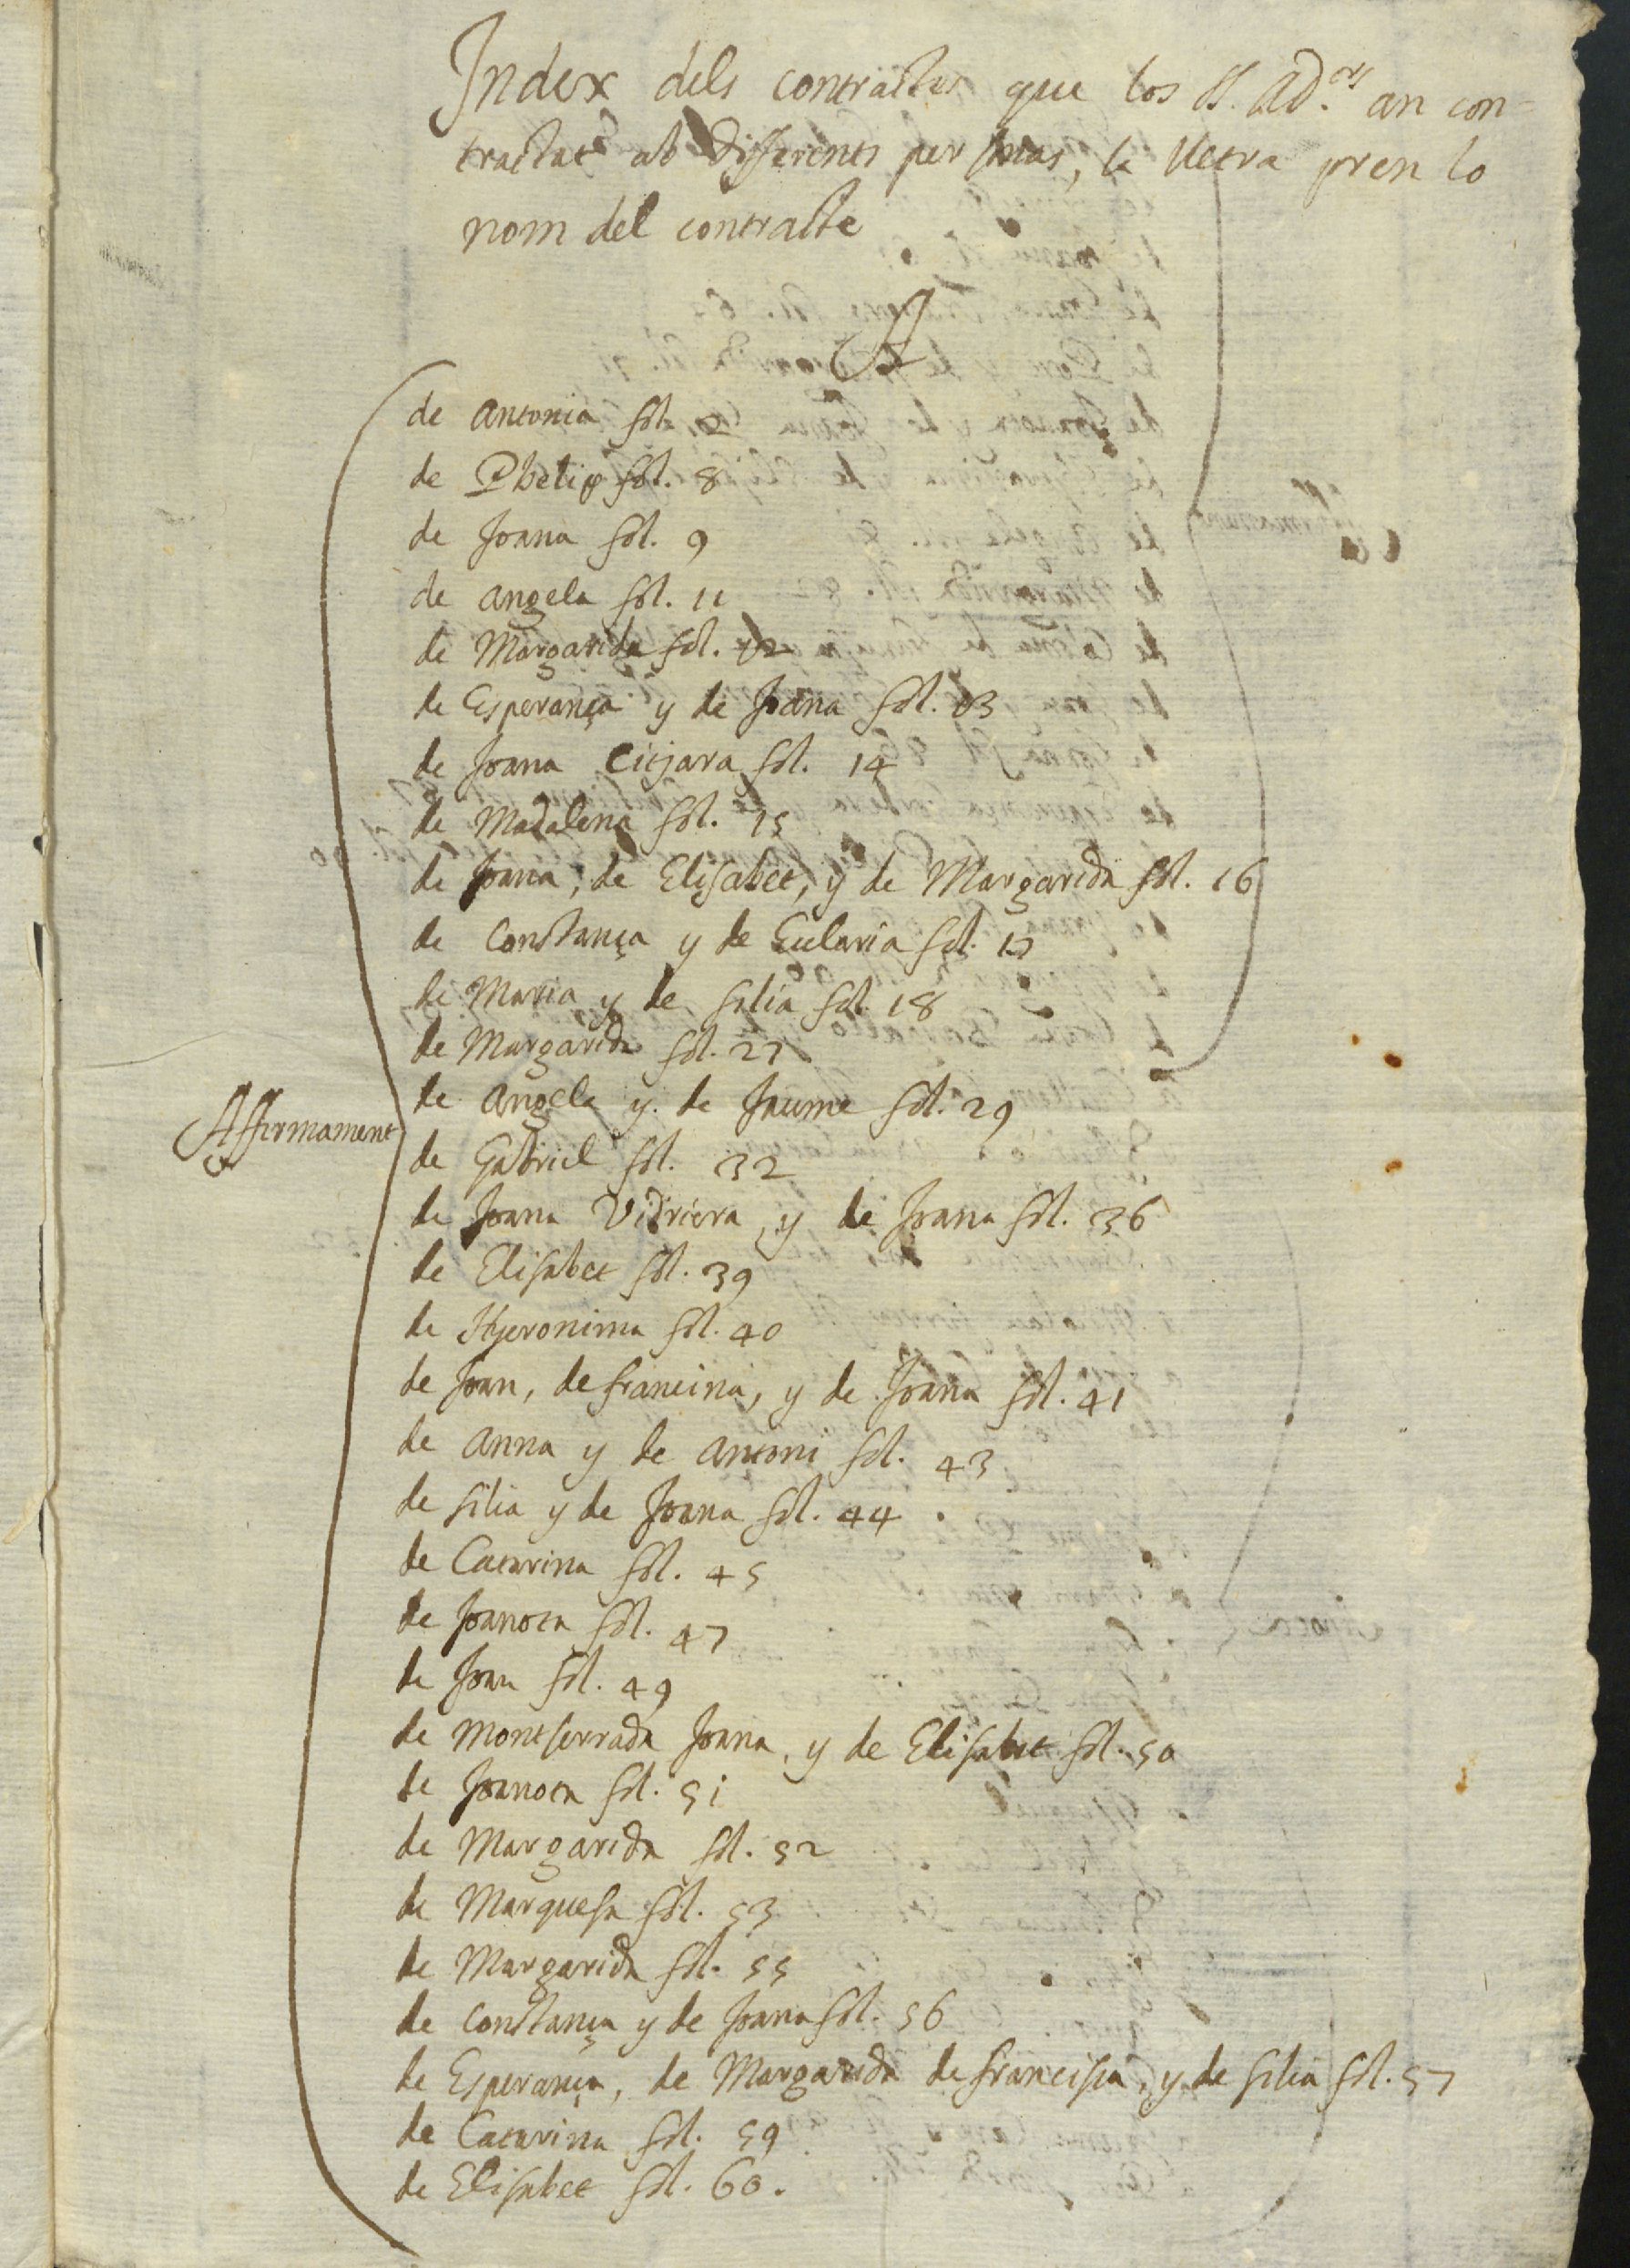 Index dels contractes que los SS. Ad.ors an con=
tractat ab differents personas, la lletra pren lo
nom del contracte
A
de Antonia fol. 2
de Phelip fol. 8
de Joana fol. 9
de Angela fol. 11
de Margarida fol. 12
de Esperança y de Joana fol. 13
de Joana Citjara fol. 14
de Madalena fol. 15
de Joana, de Elisabet, y de Margarida fol. 16
de Constança y de Eularia fol. 17
de Maria y de silia fol. 18
de Margarida fol. 27
de Angela y de Jaume fol. 29
Affirmament
de Gabriel fol. 32
de Joana Vidriera, y de Joana fol. 36
de Elisabet fol. 39
de Hyeronima fol. 40
de Joan, de francina, y de Joana fol. 41
de Anna y de Antoni fol. 43
de silia y de Joana fol. 44
de Catarina fol. 45
de Joanota fol. 47
de Joan fol. 49
de Montserrada Joana, y de Elisabet fol. 50
de Joanota fol. 51
de Margarida fol. 52
de Marquesa fol. 53
de Margarida fol. 55
de Constança y de Joana fol. 56
de Esperança, de Margarida de francisca, y de silia fol. 57
de Catarina fol. 59
de Elisabet fol. 60.